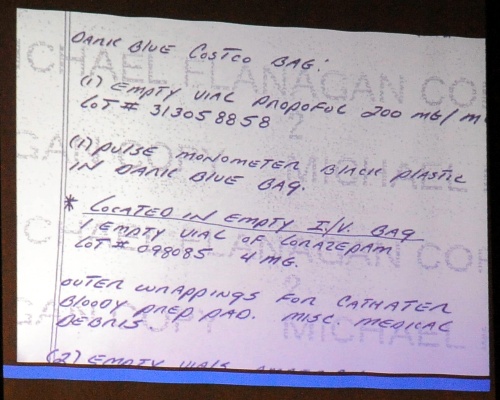 DARK BLUE COSTCO BAG:
(1) EMPTY VIAL PROPOFOL 200 MG/M
LOT # 313058858
(1) PULSE MONOMETER BLACK PLASTIC
IN DARK BLUE BAG.
* LOCATED IN EMPTY I/V. BAG
1 EMPTY VIAL OF LORAZEPAM
LOT # 098085 4 MG.
OUTER WRAPPINGS FOR CATHATER
BLOODY PREP PAD. MISC. MEDICAL
DEBRIS
(2) EMPTY VIALS
MICHAEL FLANAGAN COP
2
GAN COPY MICHAEL
CHAEL FLANAGAN COP
2
GAN COPY MICHAEL